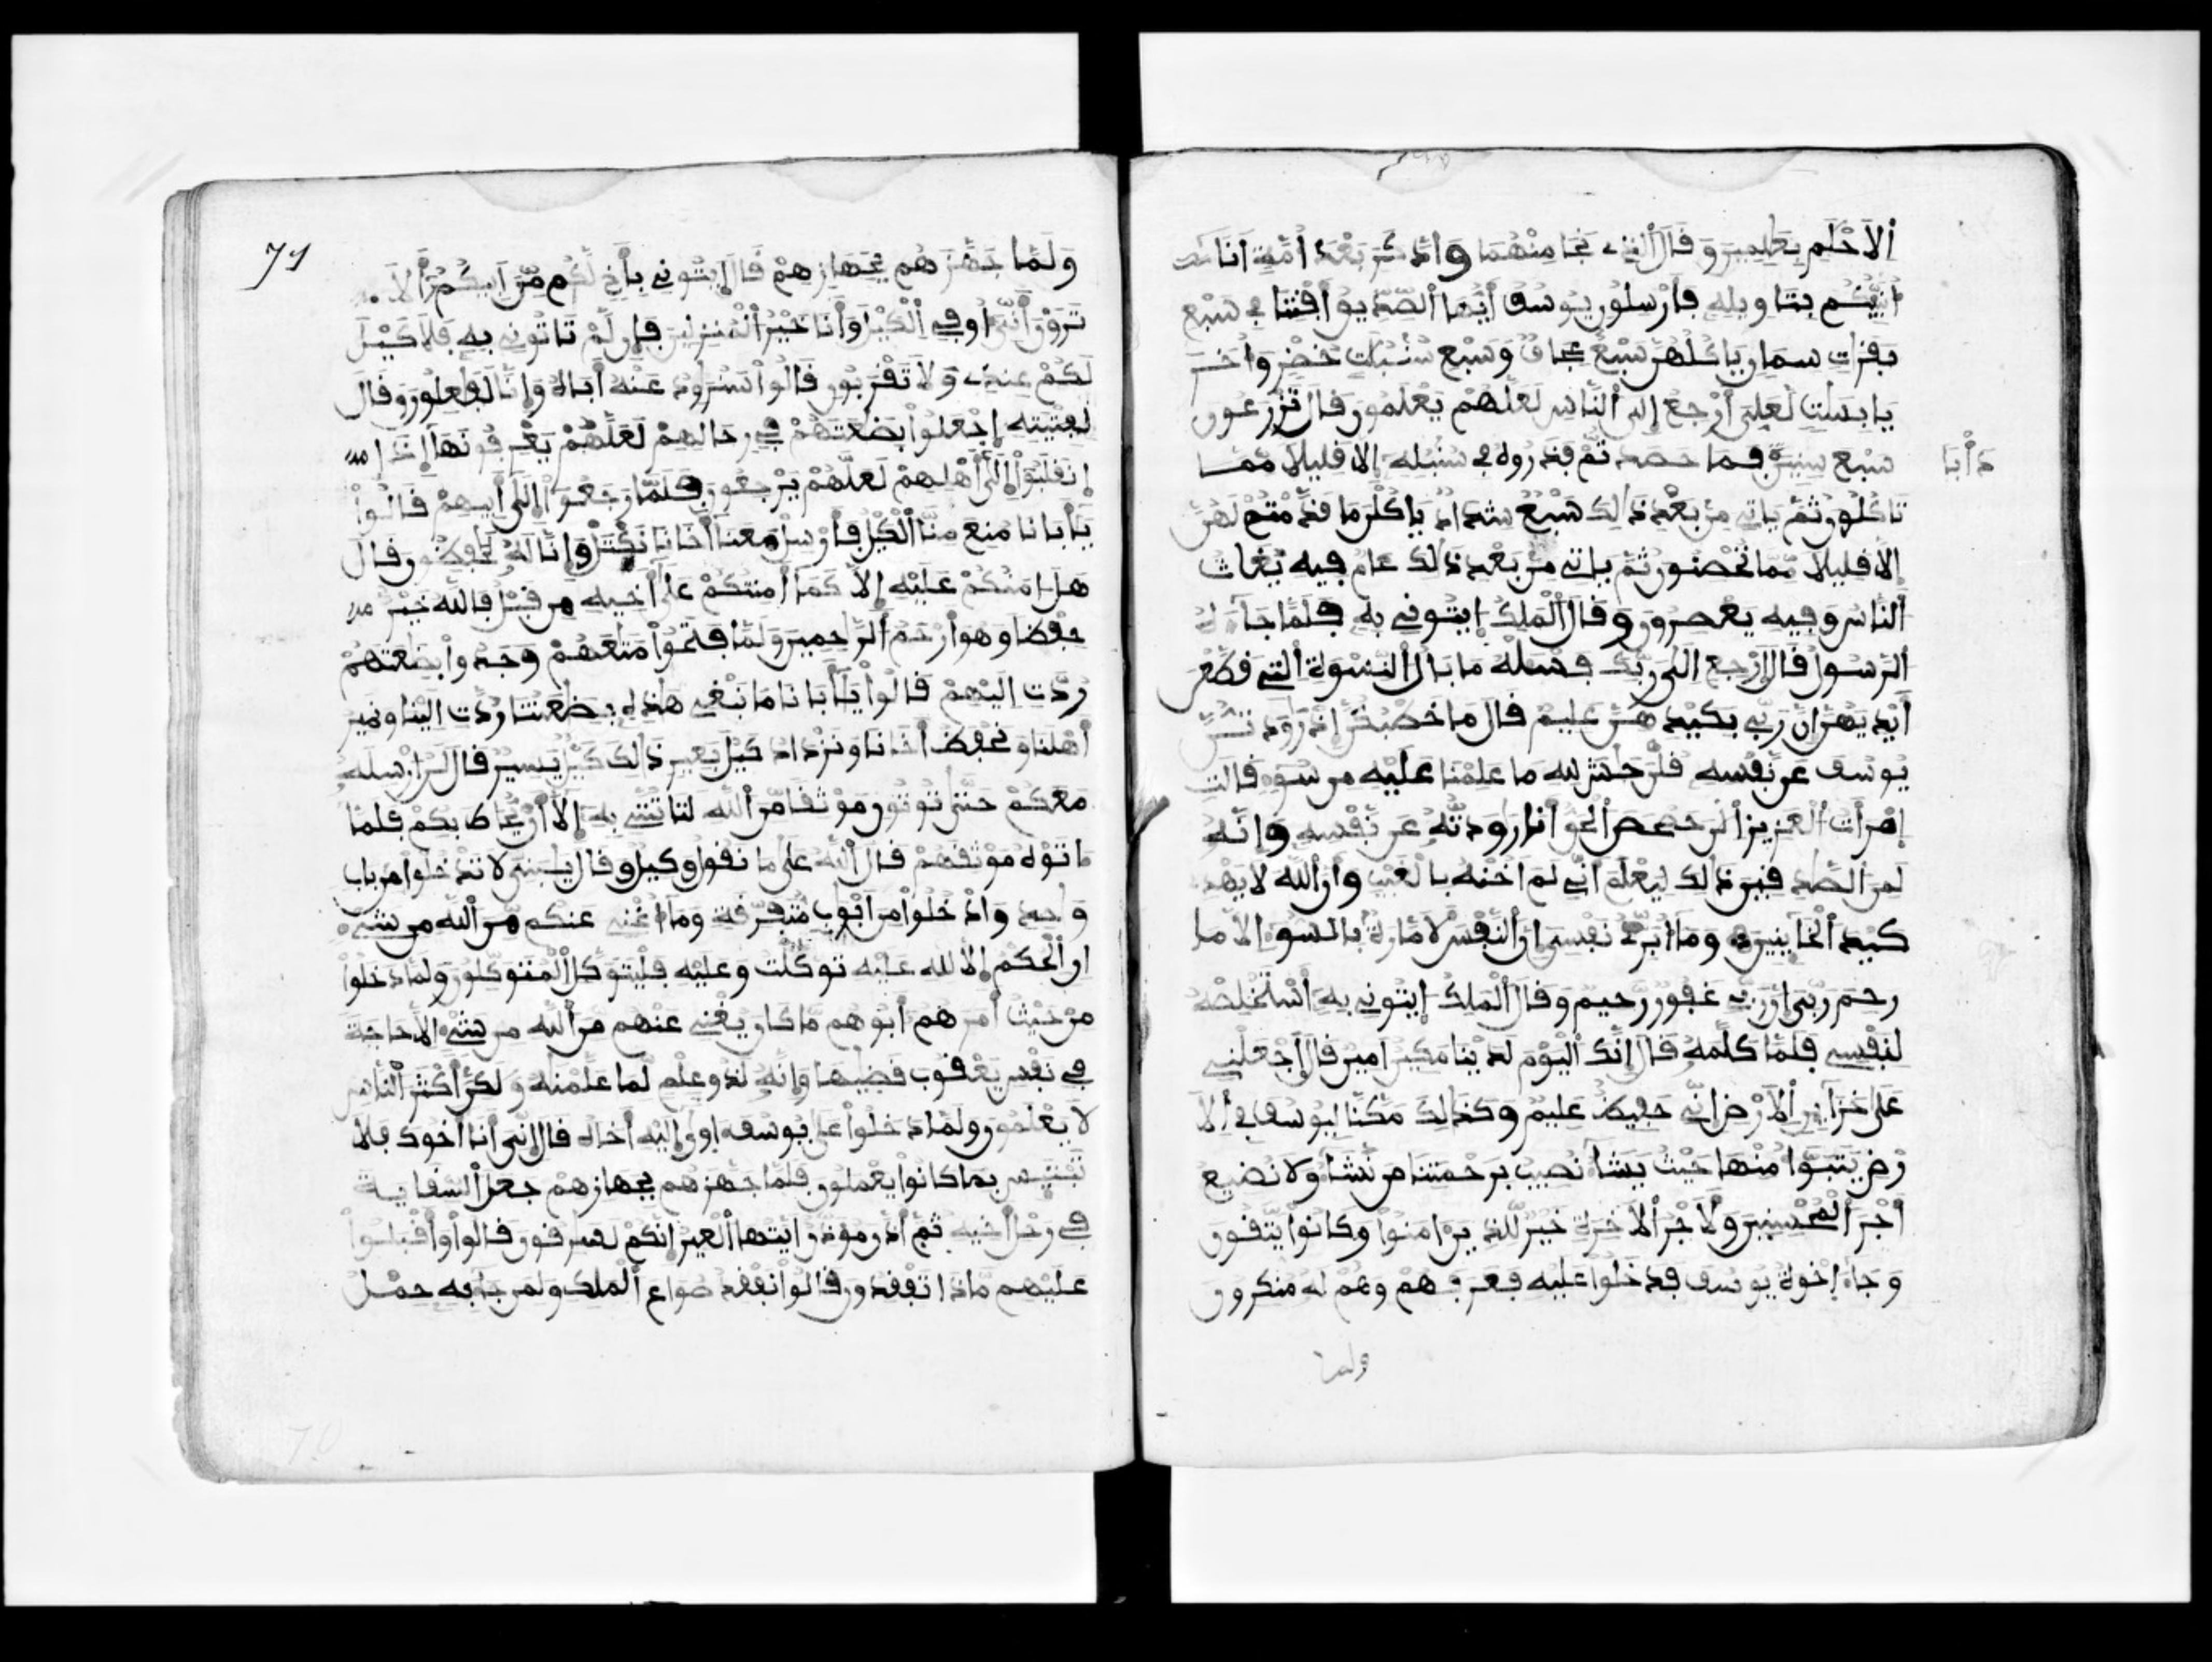 الاحلم بعلمين وقال الذى نجا منهما وادكر بعد امة انا
انبئكم بتاويله فارسلون يوسف ايها الصديق افتنا فى سبع
بقرات سمان ياكلهن سبع عجاف وسبع سنبلت خضر واخر
يابست لعلى ارجع الى الناس لعلهم يعلمون قال تزرعون
سبع سنين فما حصد تم فذروه فى سنبله الا قليلا مما
دأبا
تاكلون ثم ياتى من بعد ذالك سبع شداد ياكلن ما قدمتم لهن
الا قليلا مما تحصنون ثم ياتى من بعد ذالك عام فيه يغاث
الناس وفيه يعصرون وقال الملك ايتونى به فلما جاءه
الرسول قال ارجع الى ربك فسله ما بال النسوة التى قطعن
ايديهن ان ربى بكيدهن عليم قال ما خطبكن اذ رودتن
يوسف عن نفسه قلن حش لله ما علمنا عليه من سوء قالت
امرأت العزيز الن حصحص الحق انا رودته عن نفسه وانه
لمن الصد قين ذالك ليعلم انى لم اخنه بالغيب وان الله لا يهدى
كيد الخاينين وما ابرئ نفسى ان النفس لامارة بالسوء الا ما
رحم ربى ان ربى غفور رحيم وقال الملك ايتونى به استخلصه
لنفسى فلما كلمه قال انك اليوم لدينا مكين امين قال اجعلنى
على خزاين الارض انى حفيظ عليم وكذالك مكنا ليوسف فى الا
رض يتبوا منها حيث يشاء نصيب برحمتنا من نشاء ولا نضيع
اجر المحسنين ولاجر الاخرة خير للذين امنوا وكانوا يتقون
وجاء اخوة يوسف فدخلوا عليه فعرفهم وهم له منكرون
ولما
71
ولما جهزهم بجهازهم قال ايتونى بأخ لكم من ابيكم الا
ترون انى اوفى الكيل وانا خير المنزلين فان لم تاتونى به فلا كيل
لكم عندى ولا تقربون قالوا سنرود عنه اباه وانا لفعلون وقال
لفتيته اجعلوا بضعتهم فى رحالهم لعلهم يعرفونها اذا
انقلبوا الى اهلهم لعلهم يرجعون فلما رجعوا الى ابيهم قالوا
يأبانا منع منا الكيل فارسل معنا اخانا نكتل وانا له لحفظون قال
هل امنكم عليه الا كما امنتكم على اخيه من قبل فالله خير
حفظا وهو ارحم الراحمين ولما فتحوا متعهم وجدوا بضعتهم
ردت اليهم قالوا يأبانا ما نبغى هذه بضعتنا ردت الينا ونمير
اهلنا ونحفظ اخانا ونزداد كيل بعير ذالك كيل يسير قال لن ارسله
معكم حتى توتون موثقا من الله لتاتننى به الا ان يحاط بكم فلما
اتوه موثقهم قال الله على ما نقول وكيل وقال يبنى لا تدخلوا من باب
وحد وادخلوا من ابوب متفرقة وما اغنى عنكم من الله من شىء
ان الحكم الا لله عليه توكلت وعليه فليتوكل المتوكلون ولما دخلوا
من حيث امرهم ابوهم ما كان يغنى عنهم من الله من شىء الا حاجة
فى نفس يعقوب قضيها وانه لذو علم لما علمنه ولكن اكثر الناس
لا يعلمون ولما دخلوا على يوسف اوى اليه اخاه قال انى انا اخوك فلا
تبتيس بما كانوا يعملون فلما جهزهم بجهازهم جعل السقاية
فى رحل اخيه ثم اذن موذن ايتها العير انكم لسرقون قالوا واقبلوا
عليهم ماذا تفقدون قالوا نفقد صواع الملك ولمن جاء به حمل
70